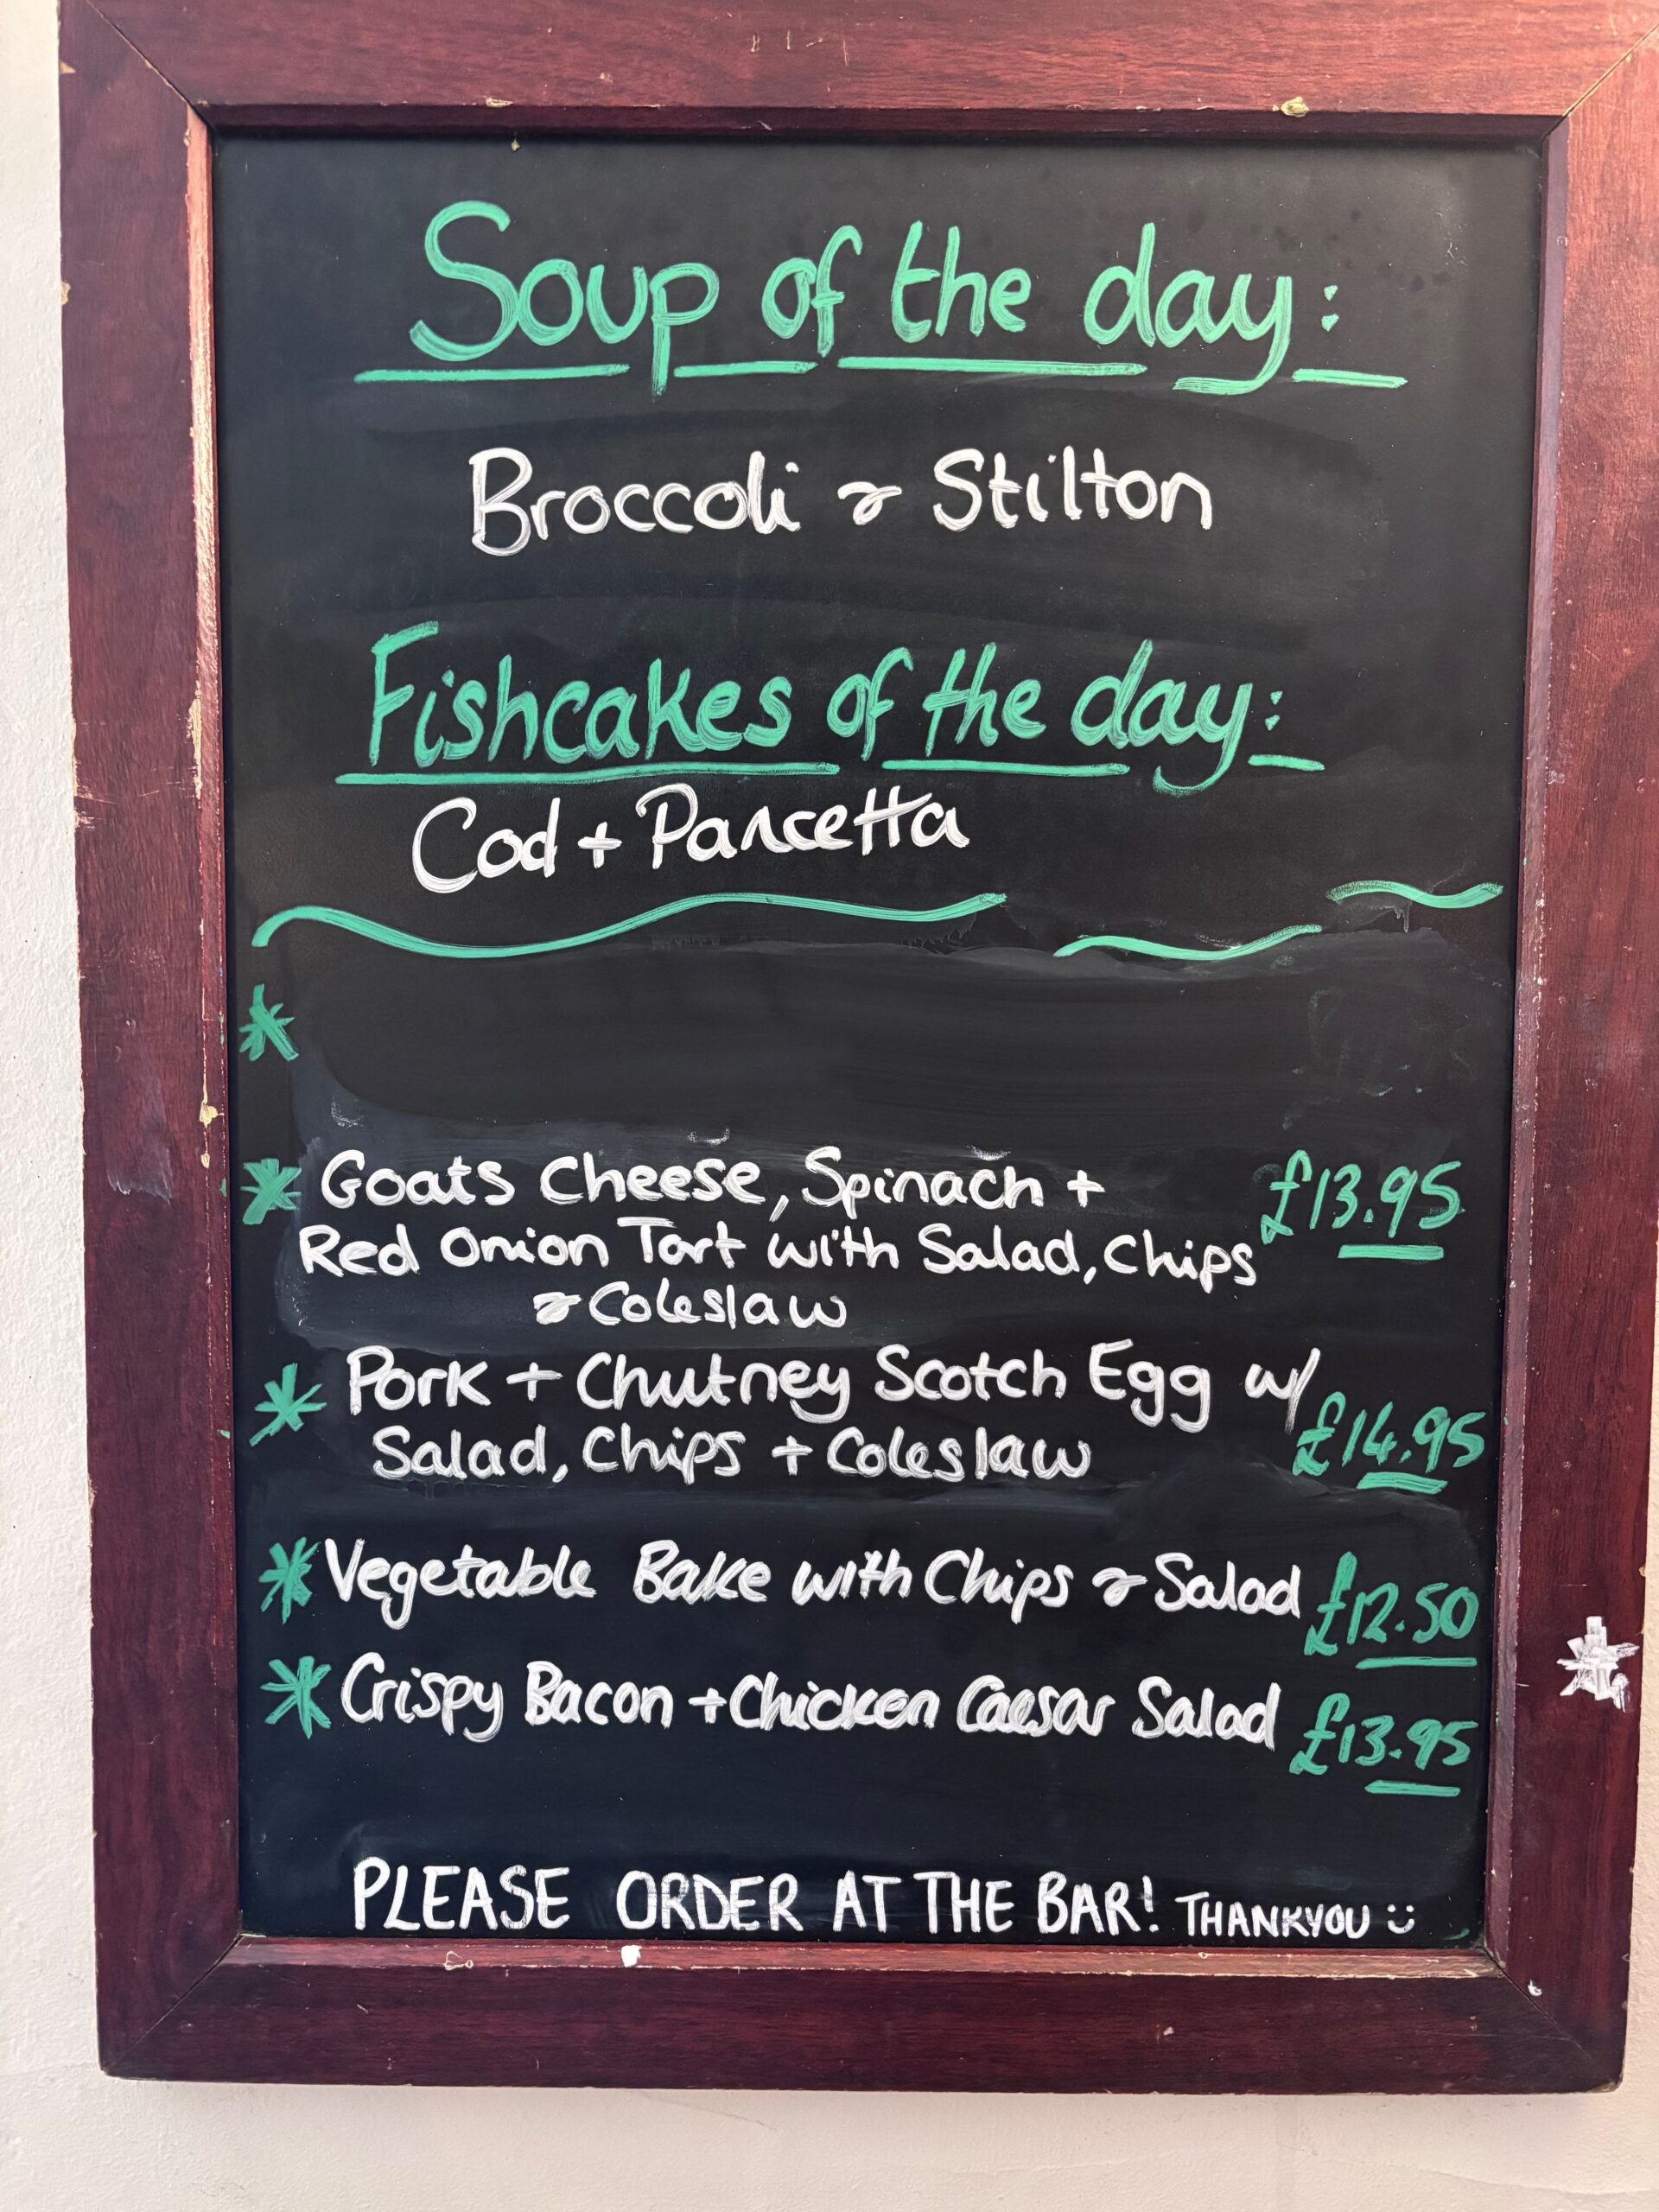 Soup of the day:
Broccoli & Stilton
Fishcakes of the day:
Cod + Pancetta
*
* Goats Cheese, Spinach + £13.95
Red Onion Tart with Salad, Chips
& Coleslaw
* Pork + Chutney Scotch Egg w/
Salad, Chips + Coleslaw £14.95
* Vegetable Bake with Chips & Salad £12.50
* Crispy Bacon + Chicken Caesar Salad £13.95
PLEASE ORDER AT THE BAR! THANKYOU :)